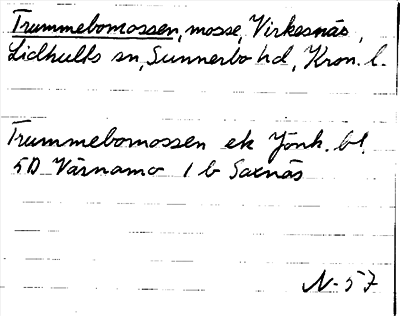 Trummebomossen, mosse, Virkesnäs,
Lidhults sn, Sunnerbo hd, Kron. l.
Trummebomossen ek Jönk. bl.
5D Värnamo 1 b Saxnäs
N-57